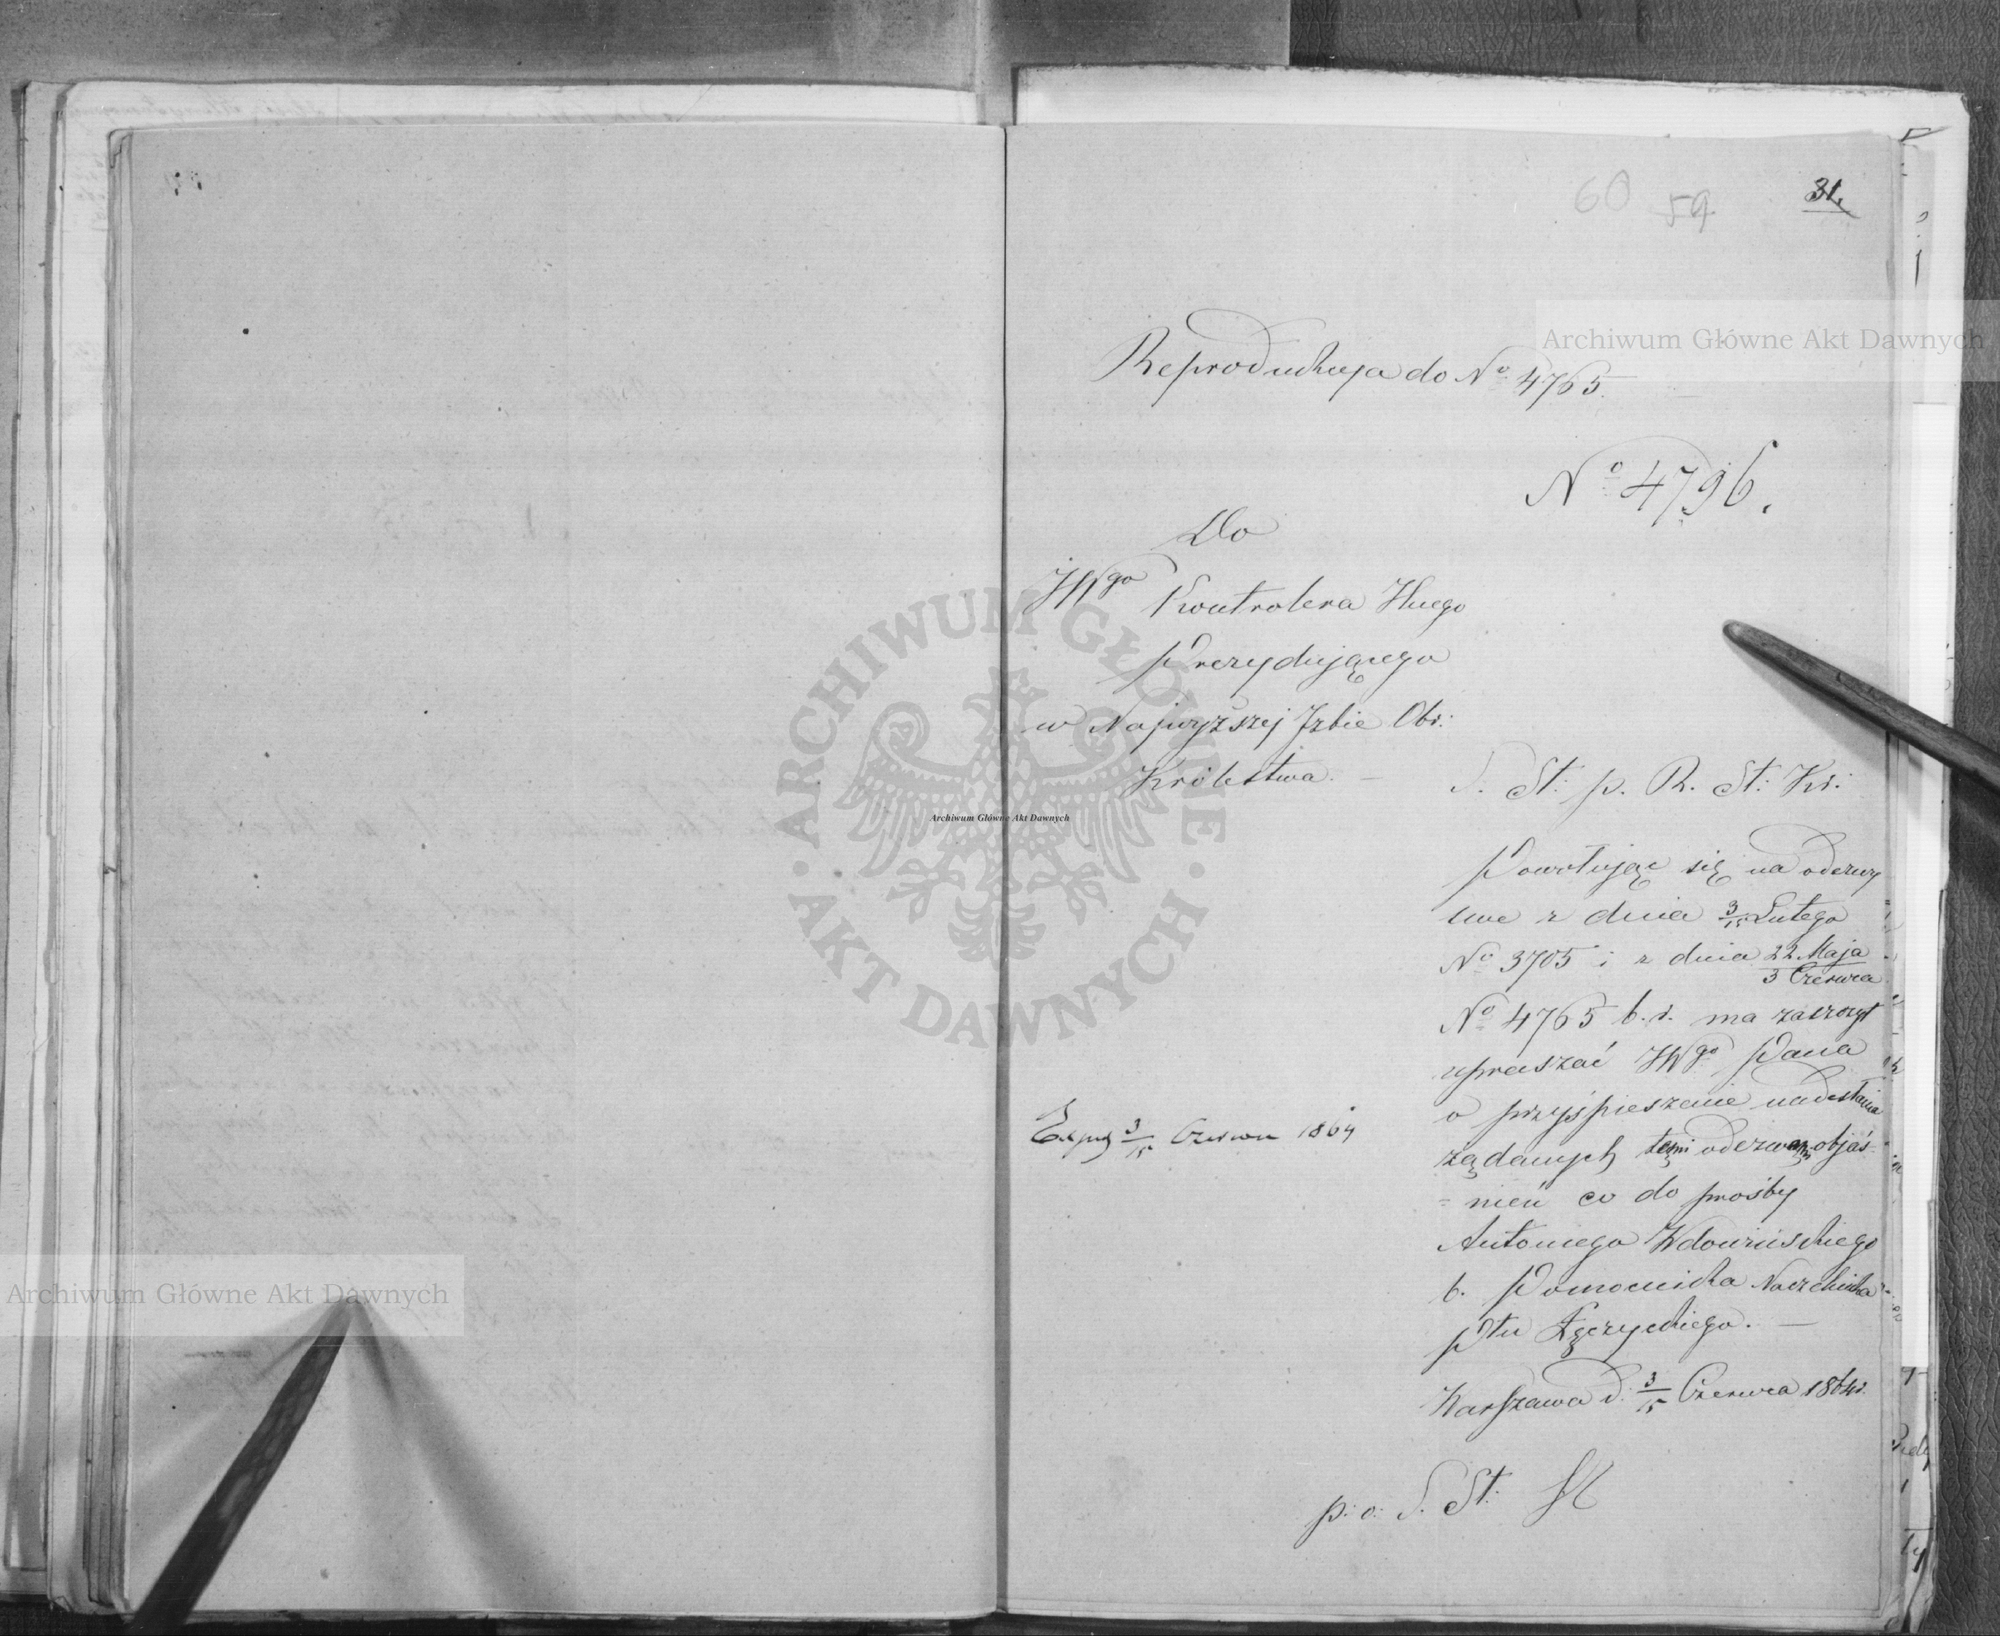 60 59 31.
Reprodukcya do No 4765.
No 4796.
Do
JWgo Kontrolera Jlnego
Prezydującego
w Najwyższej Izbie Obr:
Królestwa. —
S. St: p. R. St: Kr:
Powołując się na odezwy
swe z dnia 3/15 Lutego
No 3705 i z dnia 22 Maja/3 Czerwca
No 4765 b. r. ma zaszczyt
upraszać JWgo Pana
o przyśpieszenie nadesłania
żądanych temi odezwami objaś-
=nień co do prośby
Antoniego Wdowińskiego
b. Pomocnika Naczelnika
Ptu Łęczyckiego. —
Warszawa d. 3/15 Czerwca 1864 r.
3/15 Czerwca 1864
p. o. S. St:
Archiwum Główne Akt Dawnych
Archiwum Główne Akt Dawnych
Archiwum Główne Akt Dawnych
ARCHIWUM GŁÓWNE
AKT DAWNYCH